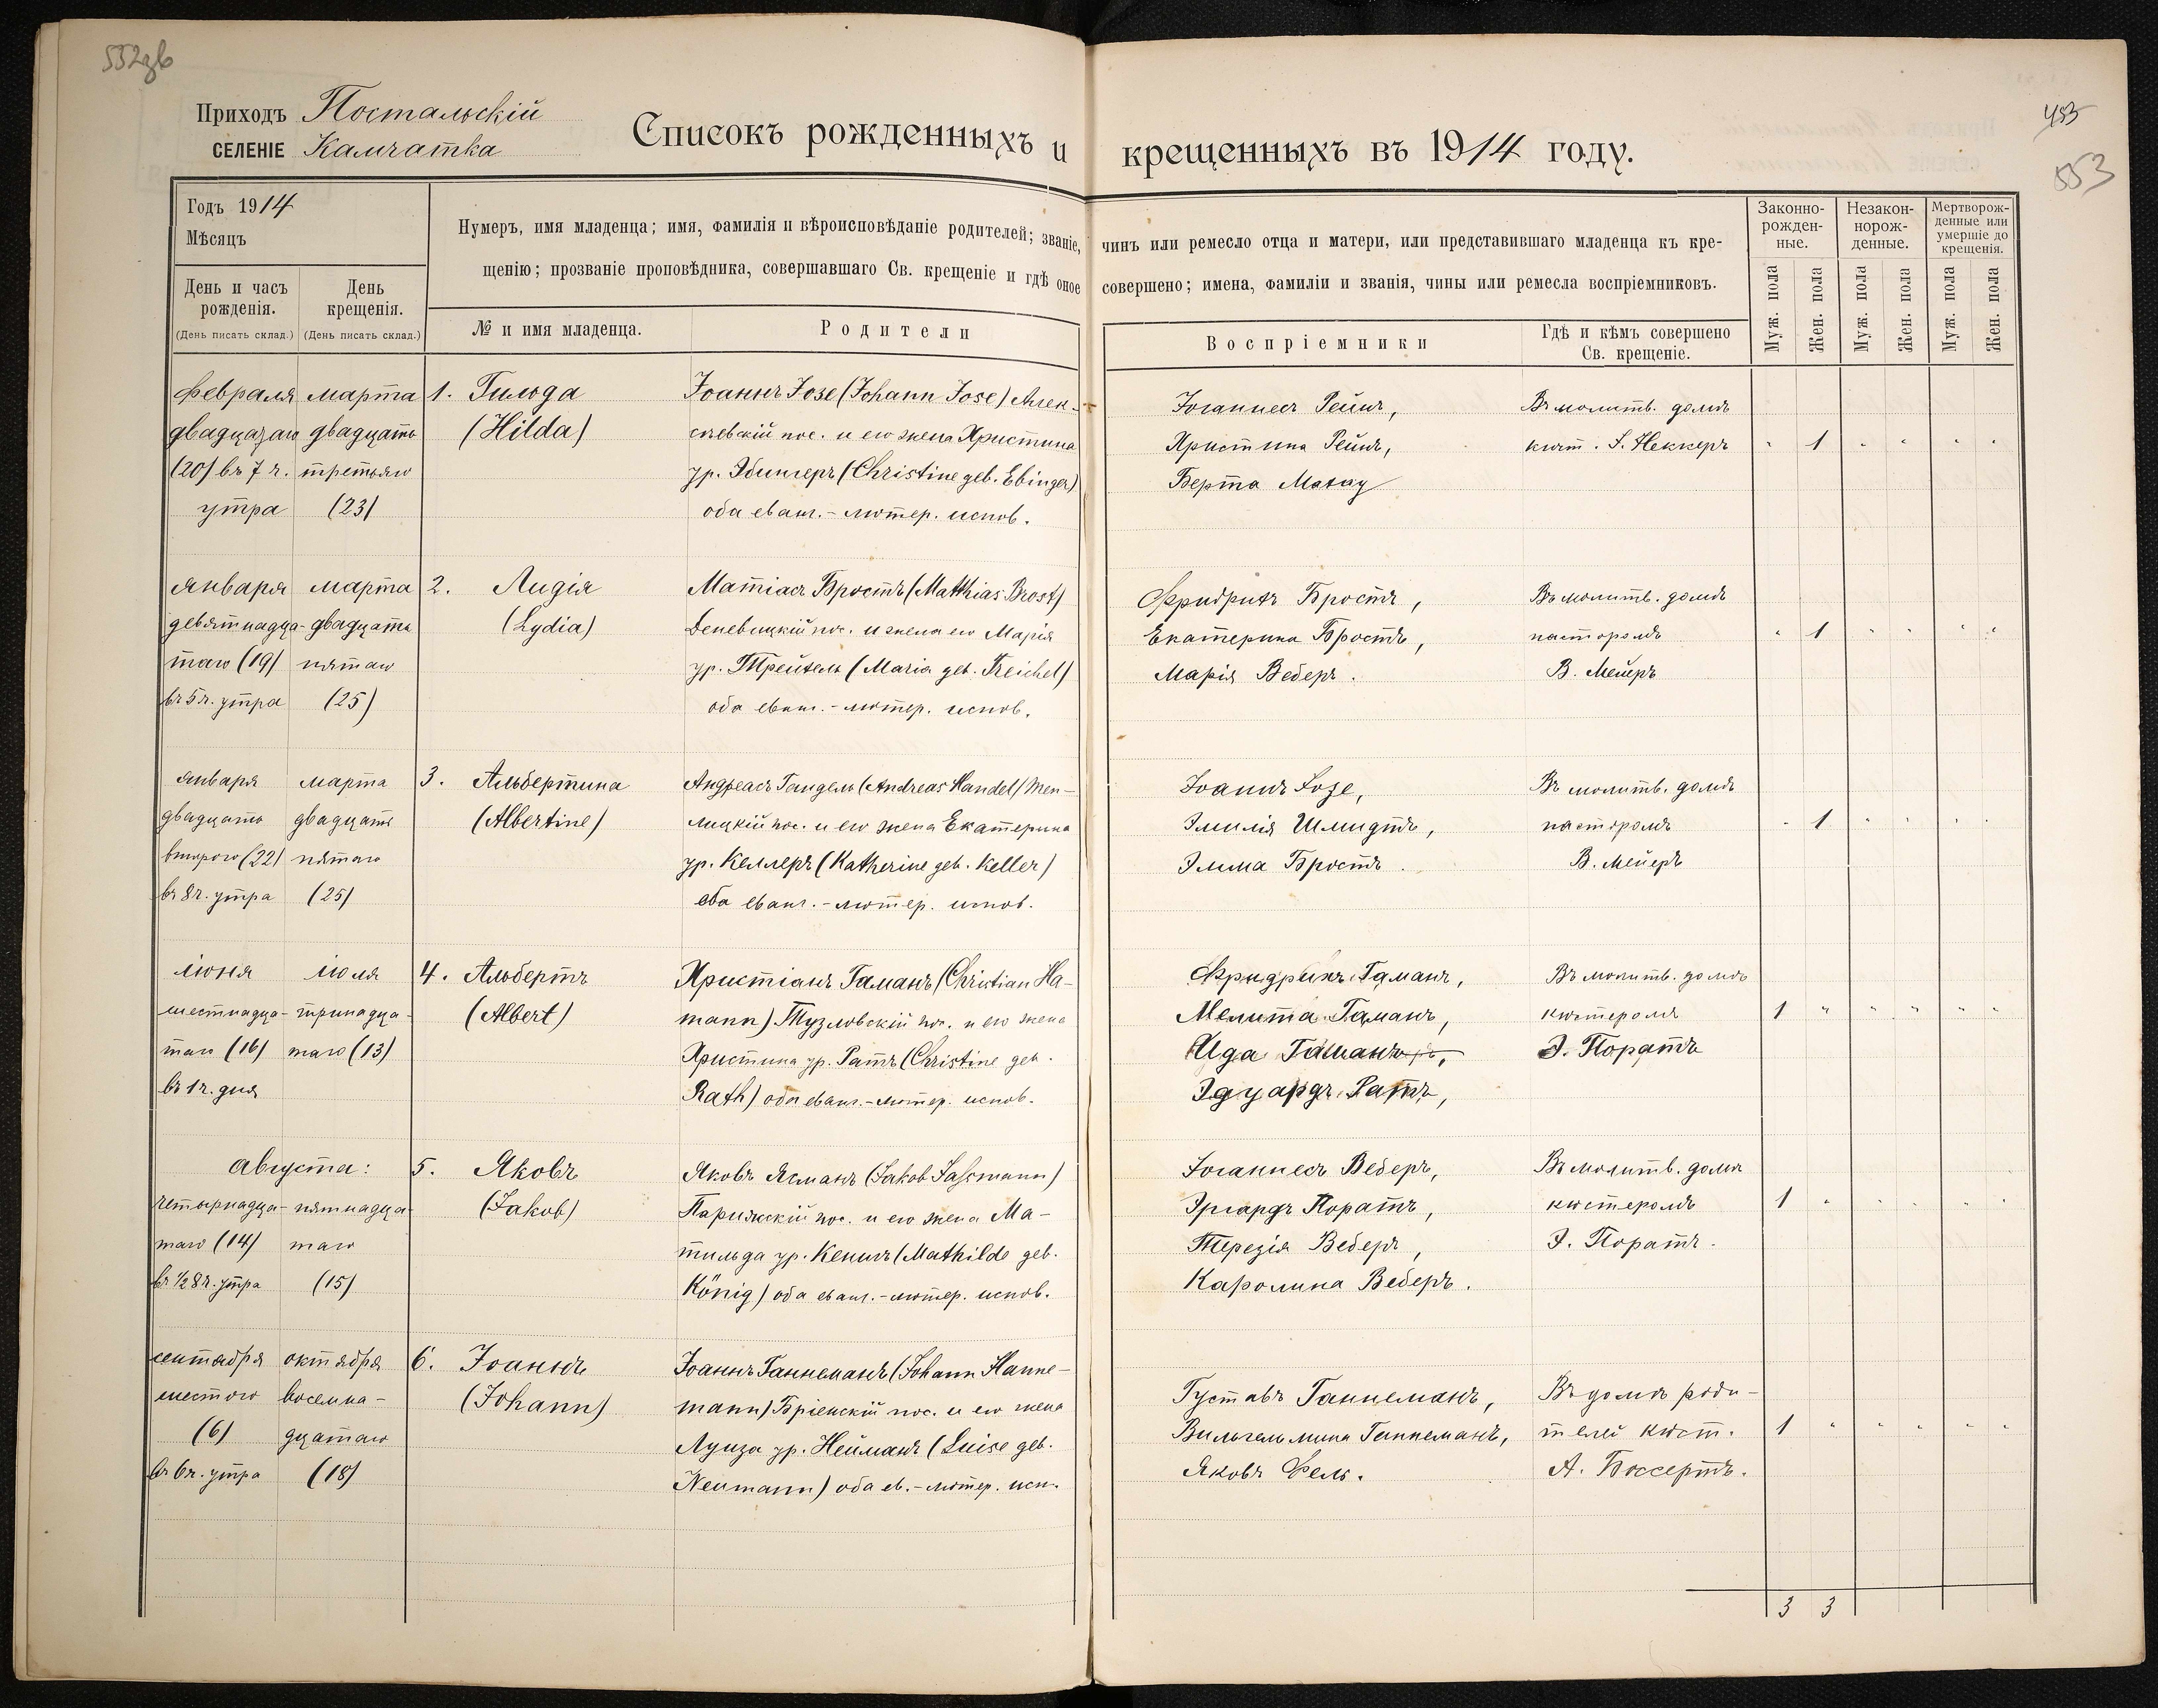 552 об
Приходъ Постальскій
СЕЛЕНІЕ Камчатка
Списокъ рожденныхъ и крещенныхъ въ 1914 году.
455
553
Годъ 1914
Мѣсяцъ
День и часъ рожденія.
(День писать склад.)
День крещенія.
(День писать склад.)
Нумеръ, имя младенца; имя, фамилія и вѣроисповѣданіе родителей; званіе, чинъ или ремесло отца и матери, или представившаго младенца къ кре-
щенію; прозваніе проповѣдника, совершавшаго Св. крещеніе и гдѣ оное совершено; имена, фамиліи и званія, чины или ремесла воспріемниковъ.
№ и имя младенца.
Родители
Воспріемники
Гдѣ и кѣмъ совершено Св. крещеніе.
Законно-рожден-ные.
Незакон-норож-денные.
Мертворож-денные или умершіе до крещенія.
Муж. пола
Жен. пола
Муж. пола
Жен. пола
Муж. пола
Жен. пола
февраля
двадцатаго
(20) въ 7 ч.
утра
марта
двадцать
третьяго
(23)
1. Гильда
(Hilda)
Іоаннъ Іозе (Johann Jose) Алек-
сѣевскій пос. и его жена Христина
ур. Эбингеръ (Christine geb. Ebinger)
оба еванг.-лютер. испов.
Іоганнесъ Рейнъ,
Христина Рейнъ,
Берта Макау
Въ молитв. домѣ
кист. І. Неккеръ
" 1 " " " "
января
девятнадца-
таго (19)
въ 5 ч. утра
марта
двадцать
пятаго
(25)
2. Лидія
(Lydia)
Матіасъ Бростъ (Matthias Brost)
Деневицкій пос. и жена его Марія
ур. Трейхель (Maria geb. Treichel)
оба еванг.-лютер. испов.
Фридрихъ Бростъ,
Екатерина Бростъ,
Марія Веберъ.
Въ молитв. домѣ
пасторомъ
В. Мейеръ
" 1 " " " "
января
двадцать
второго (22)
въ 8 ч. утра
марта
двадцать
пятаго
(25)
3. Альбертина
(Albertine)
Андреасъ Гандель (Andreas Handel) Теп-
лицкій пос. и его жена Екатерина
ур. Келлеръ (Katherine geb. Keller)
оба еванг.-лютер. испов.
Іоаннъ Іозе,
Эмилія Шмидтъ,
Эмма Бростъ.
Въ молитв. домѣ
пасторомъ
В. Мейеръ
" 1 " " " "
іюня
шестнадца-
таго (16)
въ 1 ч. дня
іюля
тринадца-
таго (13)
4. Альбертъ
(Albert)
Христіанъ Гаманъ (Christian Ha-
mann) Тузловскій пос. и его жена
Христина ур. Ратъ (Christine geb.
Rath) оба еванг.-лютер. испов.
Фридрихъ Гаманъ,
Мелита Гаманъ,
Ида Гаманъ,
Эдуардъ Ратъ,
Въ молитв. домѣ
кюстеромъ
Э. Поратъ
1 " " " " "
августа:
четырнадца-
таго (14)
въ ½ 8 ч. утра
пятнадца-
таго
(15)
5. Яковъ
(Jakob)
Яковъ Ясманъ (Jakob Jassmann)
Парижскій пос. и его жена Ма-
тильда ур. Кенигъ (Mathilde geb.
König) оба еванг.-лютер. испов.
Іоганнесъ Веберъ,
Эргардъ Поратъ,
Терезія Веберъ,
Каролина Веберъ.
Въ молитв. домѣ
кюстеромъ
Э. Поратъ.
1 " " " "
сентября
шестого
(6)
въ 6 ч. утра
октября
восемна-
дцатаго
(18)
6. Іоаннъ
(Johann)
Іоаннъ Ганнеманъ (Johann Hanne-
mann) Бріенскій пос. и его жена
Луиза ур. Нейманъ (Luise geb.
Neumann) оба ев.-лютер. исп.
Густавъ Ганнеманъ,
Вильгельмина Ганнеманъ,
Яковъ Фель.
Въ домѣ роди-
телей кюст.
А. Боссертъ.
1 " " " " "
3 3